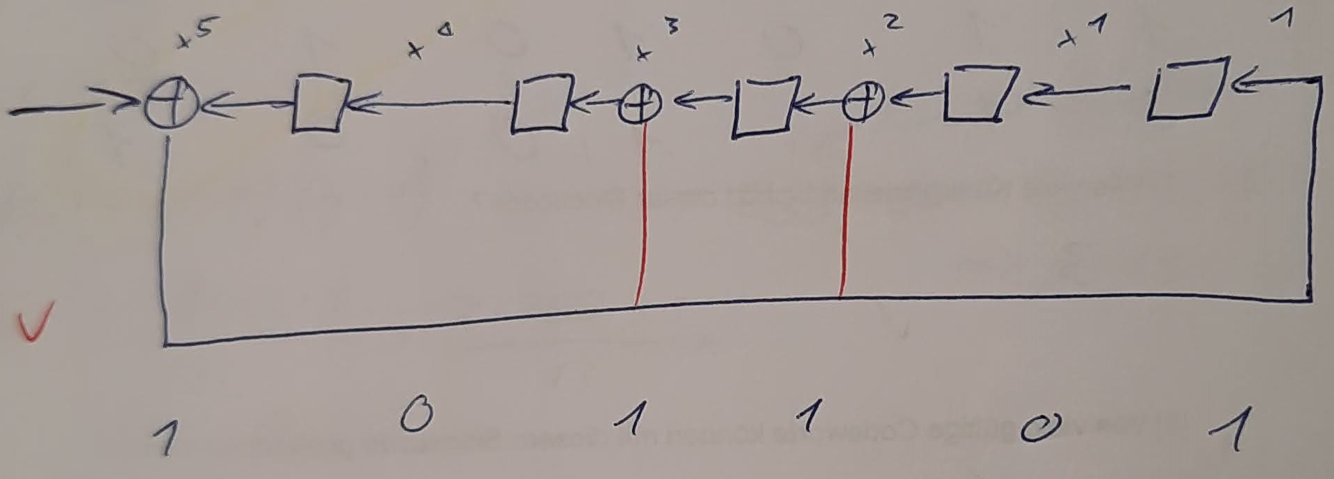 x⁵ x⁴ x³ x² x¹ 1
1 0 1 1 0 1